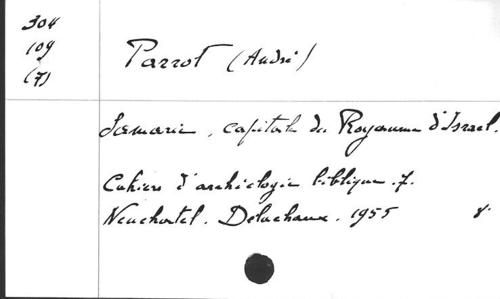 304
109
(7)
Parrot (André)
Samarie, capitale du Royaume d'Israel.
Cahiers d'archéologie biblique. 7.
Neuchatel. Delachaux. 1955 8°